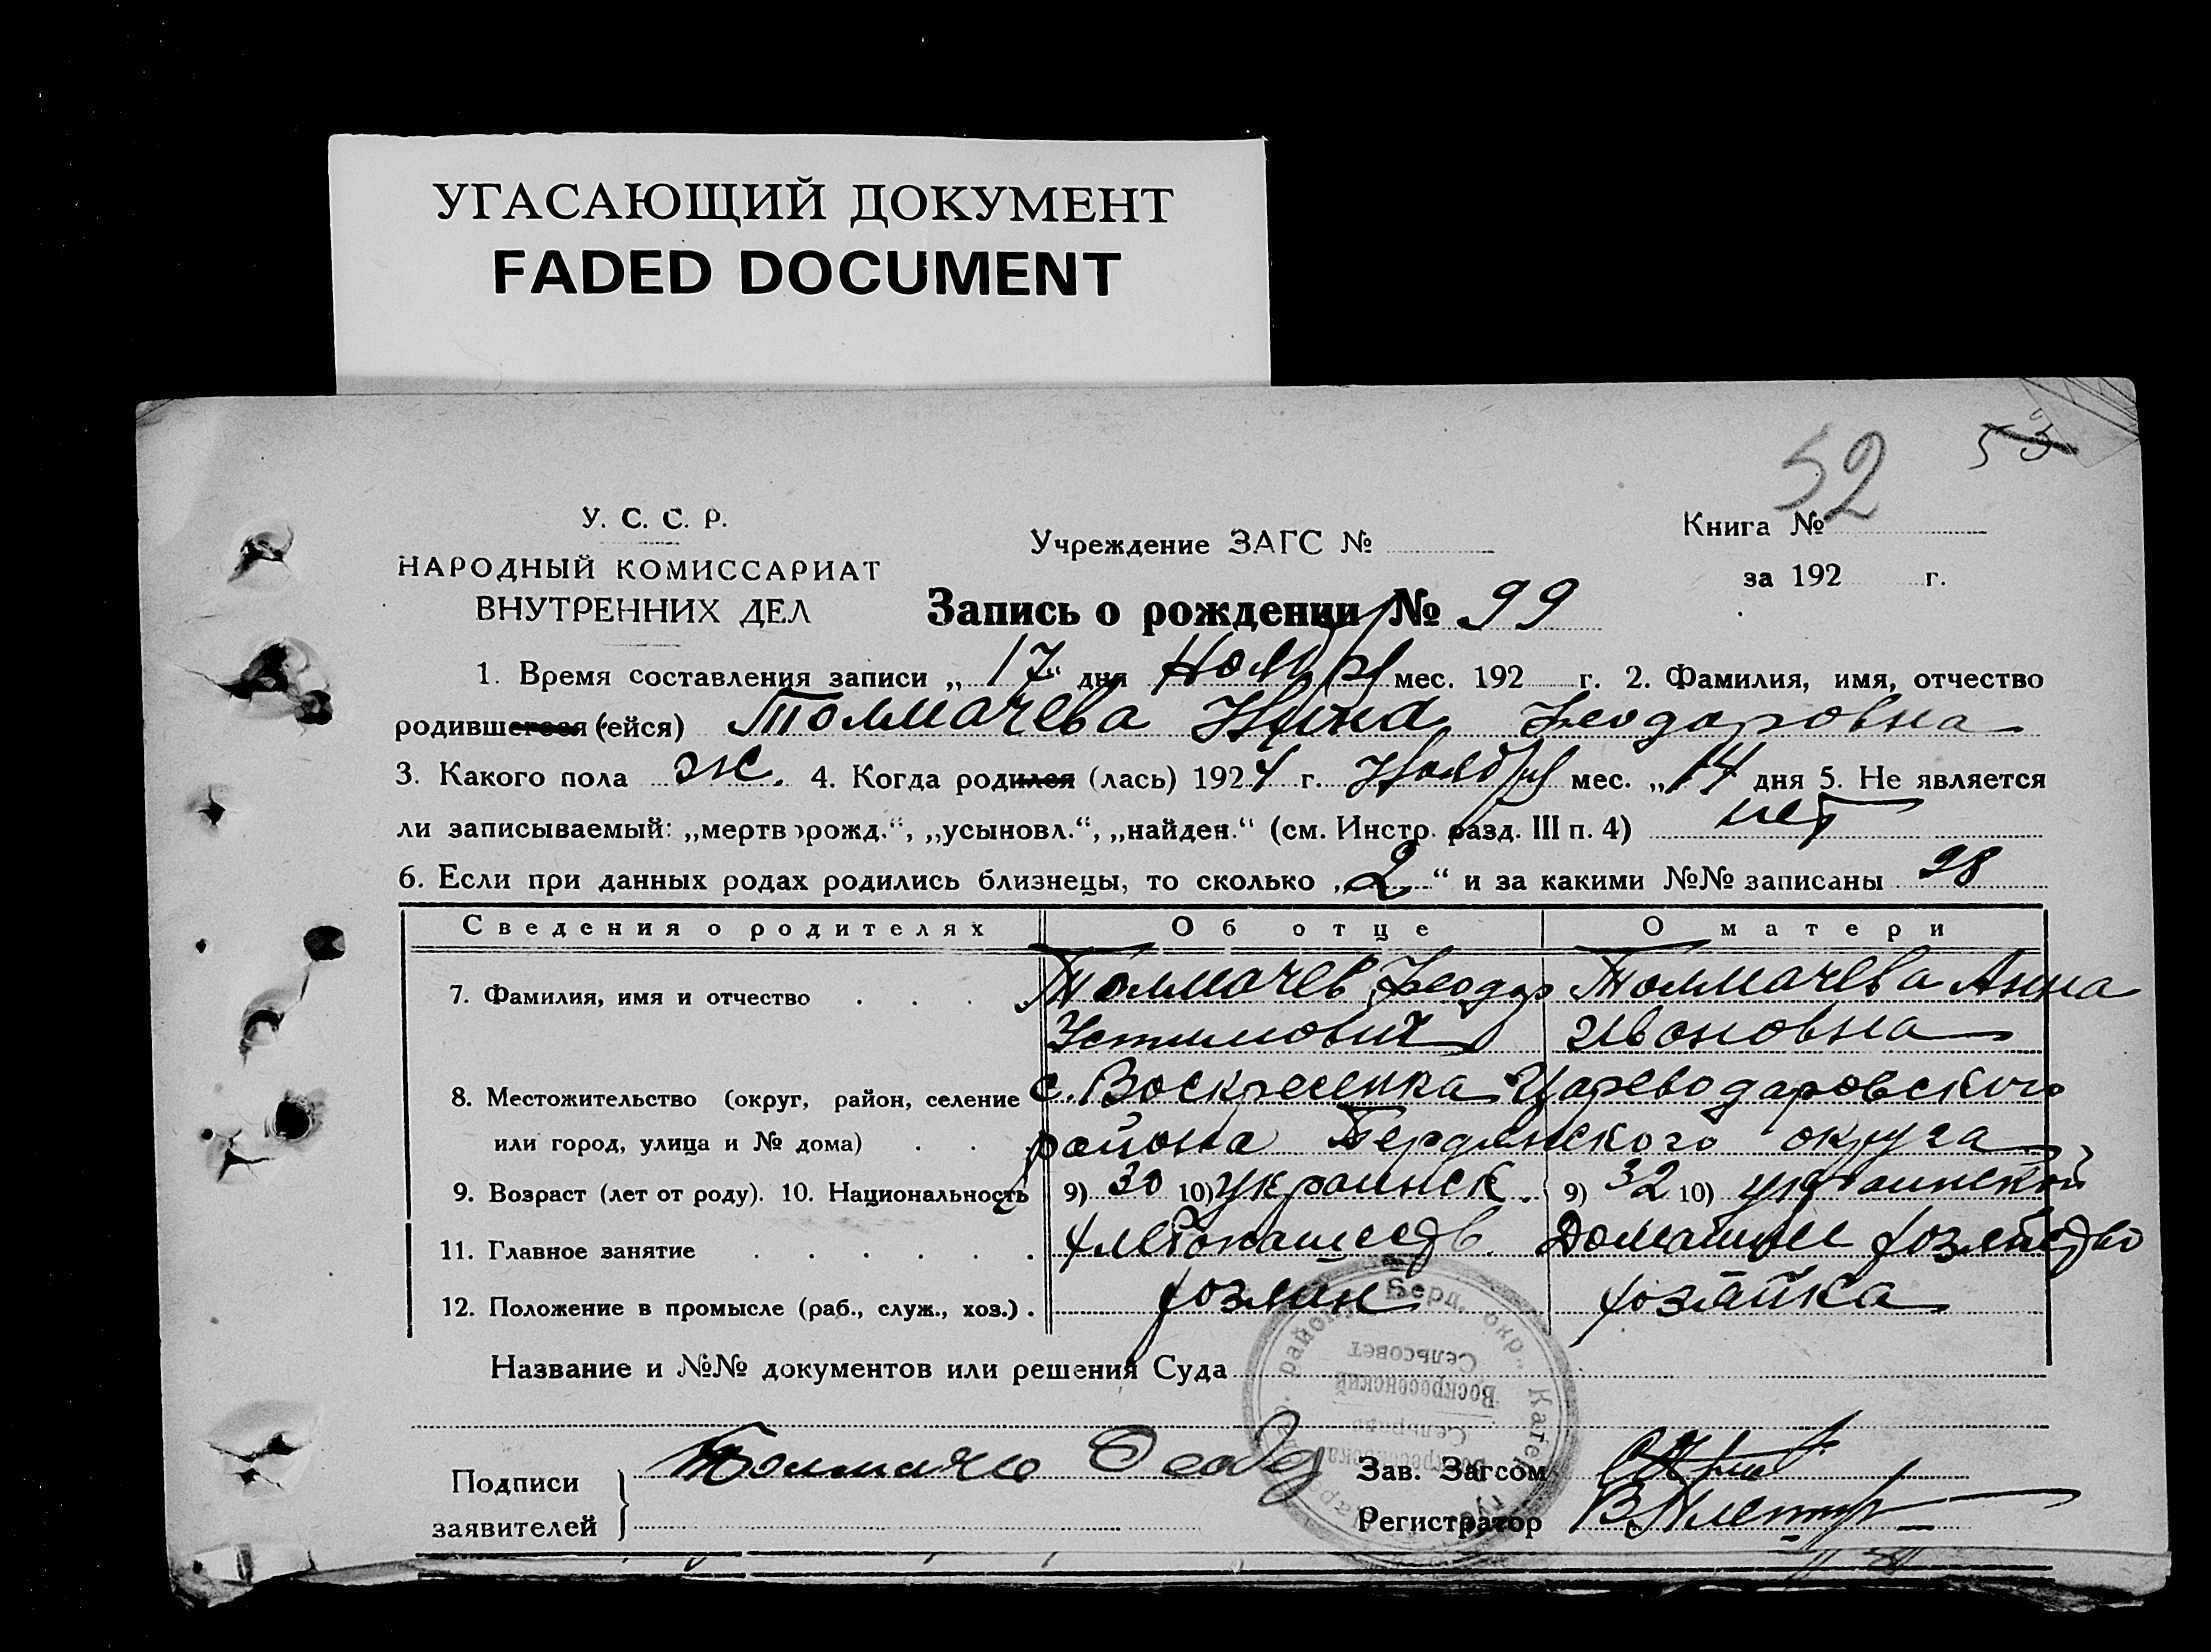 УГАСАЮЩИЙ ДОКУМЕНТ
FADED DOCUMENT
52 53
У. С. С. Р.
НАРОДНЫЙ КОМИССАРИАТ
ВНУТРЕННИХ ДЕЛ
Учреждение ЗАГС №
Книга №
за 192 г.
Запись о рождении № 99
1. Время составления записи „17“ дня Ноября мес. 192 г. 2. Фамилия, имя, отчество
родившегося (ейся) Толмачева Нина Феодоровна
3. Какого пола ж. 4. Когда родился (лась) 1924 г. Ноября мес. „14 дня 5. Не является
ли записываемый: „мертворожд.“, „усыновл.“, „найден.“ (см. Инстр. разд. III п. 4) нет
6. Если при данных родах родились близнецы, то сколько „2“ и за какими №№ записаны 98
Сведения о родителях Об отце О матери
7. Фамилия, имя и отчество Толмачев Феодор Толмачева Анна
Устимович Ивановна
8. Местожительство (округ, район, селение с. Воскресенка Цареводаровского
или город, улица и № дома) района Бердянского округа
9. Возраст (лет от роду). 10. Национальность 9) 30 10) украинск. 9) 32 10) украинской
11. Главное занятие хлебопашеств. Домашнее хозяйство
12. Положение в промысле (раб., служ., хоз.) хозяин хозяйка
Название и №№ документов или решения Суда
Берд. окр., Катер. губ. район
Сельсовет
Воскресенский
Подписи
заявителей
Толмачев Феод
Зав. Загсом
Регистратор